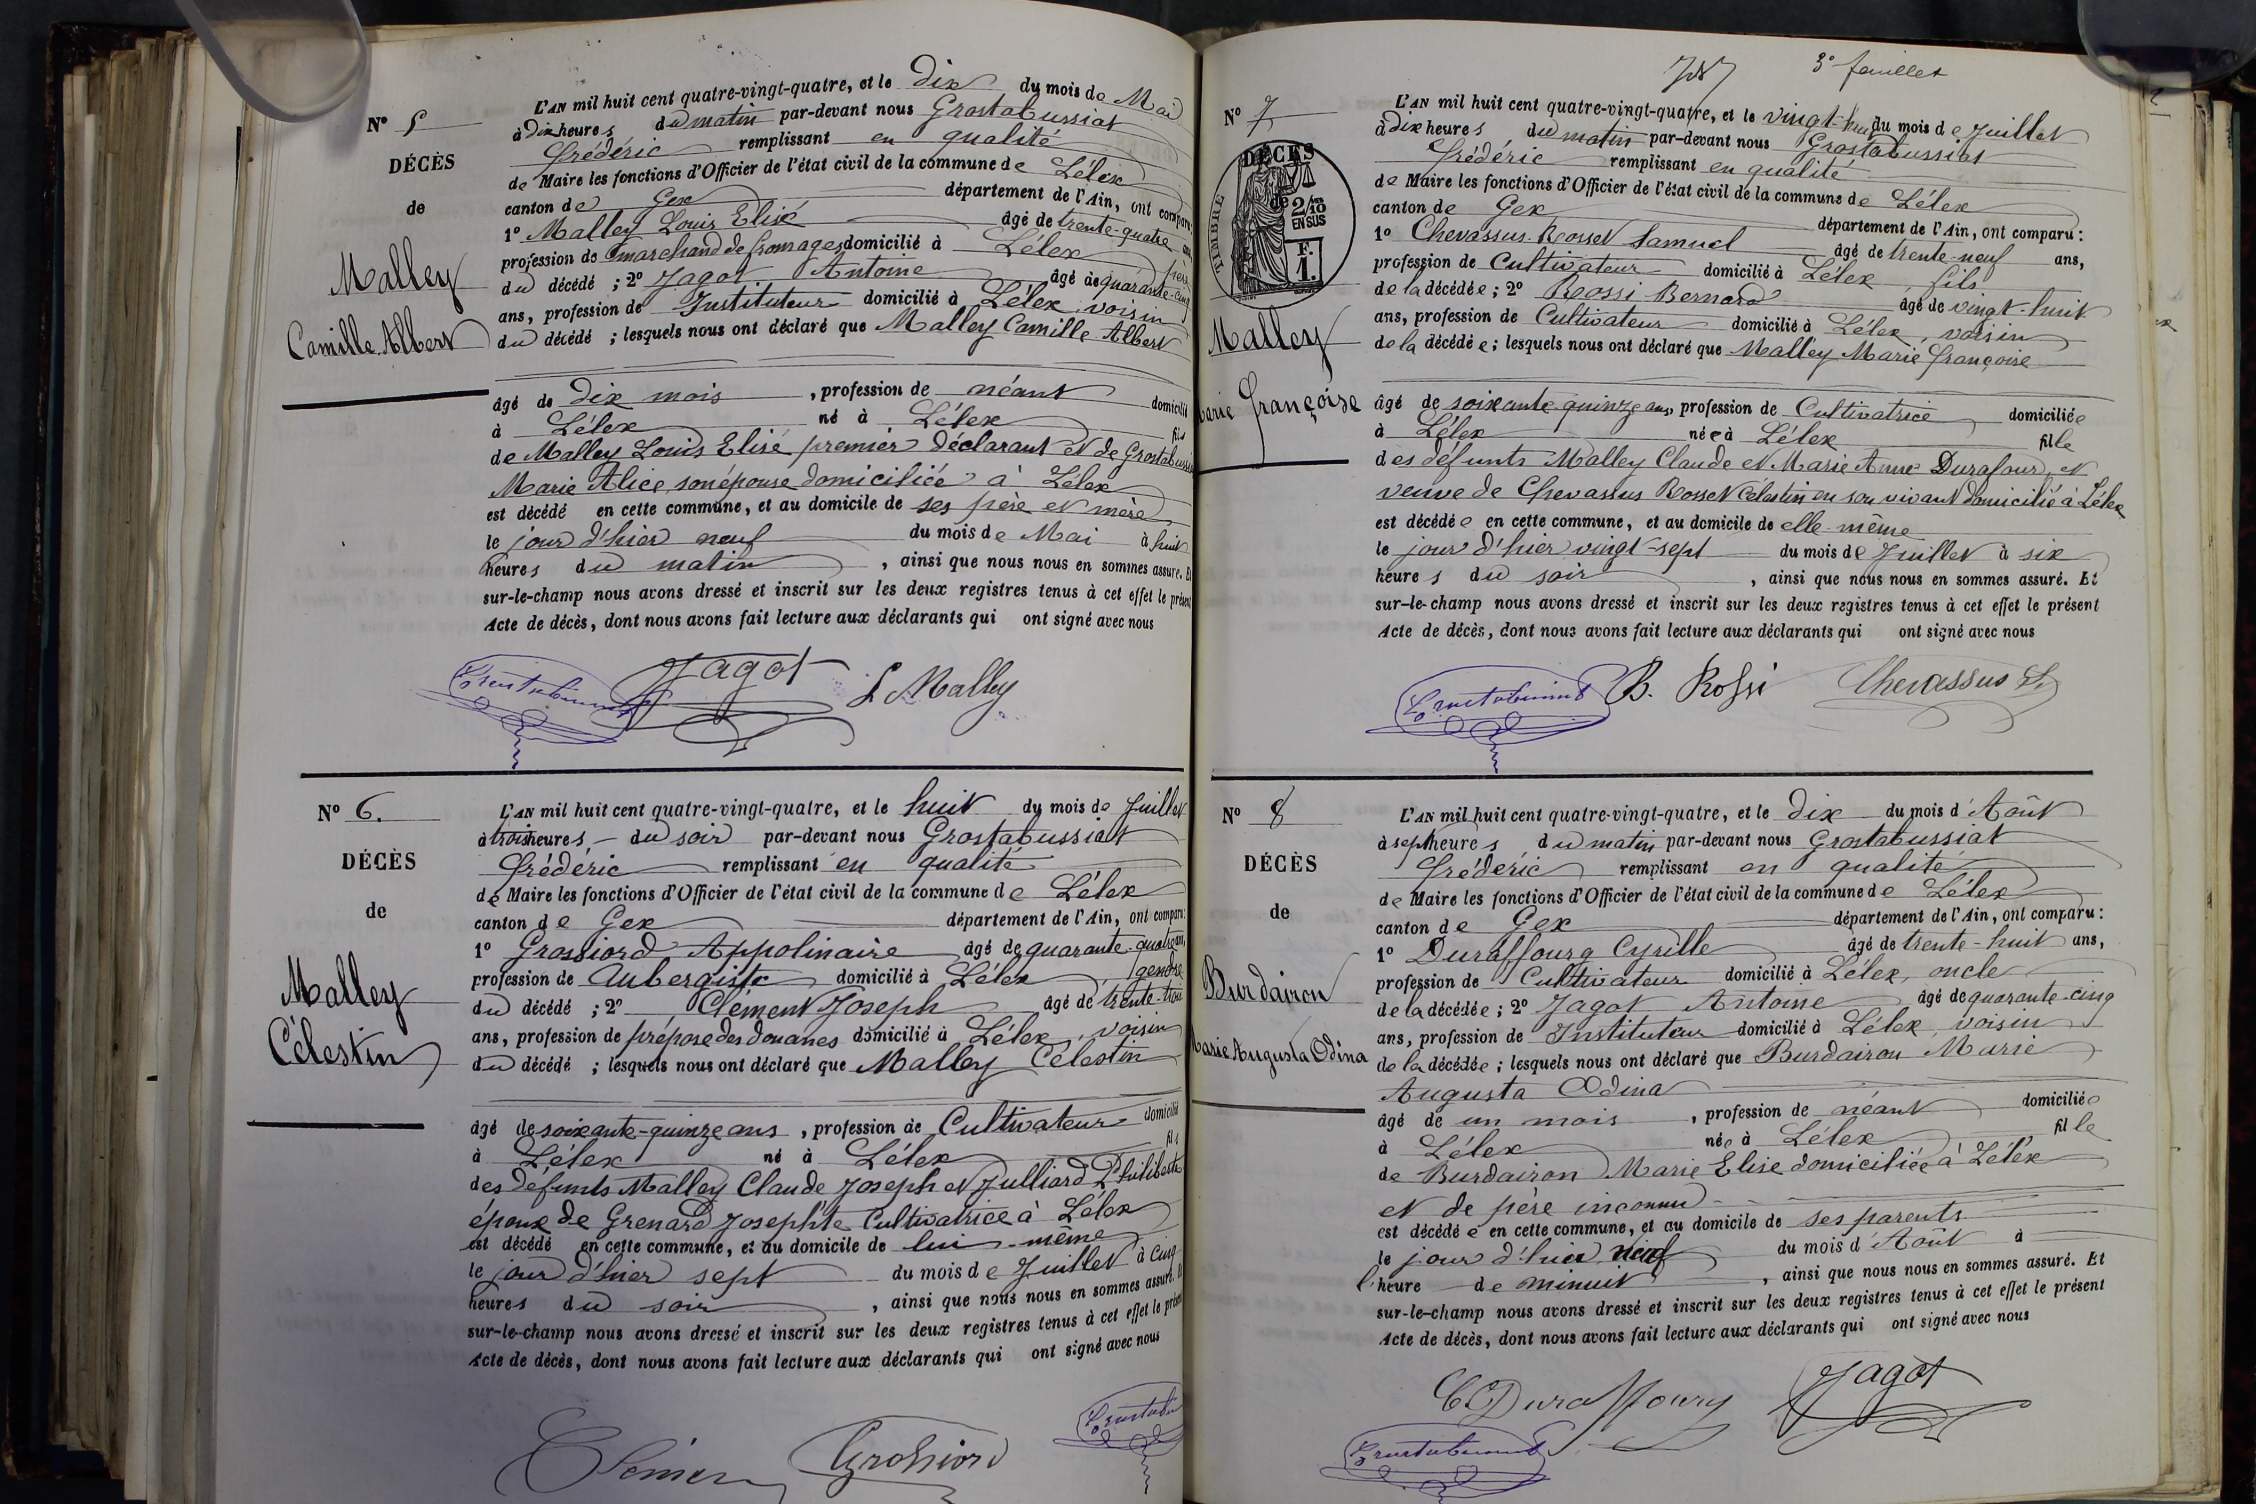 N° 5
DÉCÈS
de
Malley
Camille Albert
L'AN mil huit cent quatre-vingt-quatre, et le dix du mois de Mai
à dix heures du matin par-devant nous Grostabussiat
Frédéric remplissant en qualité
de Maire les fonctions d'Officier de l'état civil de la commune de Lélex
canton de Gex département de l'Ain, ont comparu:
1° Malley Louis Elisé âgé de trente-quatre ans,
profession de marchand de fromages domicilié à Lélex père
du décédé ; 2° Jagot Antoine âgé de quarante-cinq
ans, profession de Instituteur domicilié à Lélex, voisin
du décédé ; lesquels nous ont déclaré que Malley Camille Albert
âgé de dix mois , profession de néant domicilié
à Lélex né à Lélex fils
de Malley Louis Elisé premier déclarant et de Grostabussiat
Marie Alice, son épouse domiciliée à Lélex
est décédé en cette commune, et au domicile de ses père et mère
le jour d'hier neuf du mois de Mai à huit
heures du matin , ainsi que nous nous en sommes assuré. Et
sur-le-champ nous avons dressé et inscrit sur les deux registres tenus à cet effet le présent
Acte de décès, dont nous avons fait lecture aux déclarants qui ont signé avec nous
Jagot L Malley
N° 6.
DÉCÈS
de
Malley
Célestin
L'AN mil huit cent quatre-vingt-quatre, et le huit du mois de Juillet
à trois heures du soir par-devant nous Grostabussiat
Frédéric remplissant en qualité
de Maire les fonctions d'Officier de l'état civil de la commune de Lélex
canton de Gex département de l'Ain, ont comparu:
1° Grossiord Appolinaire âgé de quarante-quatre ans,
profession de Aubergiste domicilié à Lélex gendre
du décédé ; 2° Clément Joseph âgé de trente-trois
ans, profession de préposé des douanes domicilié à Lélex, voisin
du décédé ; lesquels nous ont déclaré que Malley Célestin
âgé de soixante-quinze ans , profession de Cultivateur domicilié
à Lélex né à Lélex fils
des défunts Malley Claude Joseph et Julliard Philiberte
époux de Grenard Josephte Cultivatrice à Lélex
est décédé en cette commune, et au domicile de lui-même
le jour d'hier sept du mois de Juillet à cinq
heures du soir , ainsi que nous nous en sommes assuré. Et
sur-le-champ nous avons dressé et inscrit sur les deux registres tenus à cet effet le présent
Acte de décès, dont nous avons fait lecture aux déclarants qui ont signé avec nous
Grossiord
3e feuillet
N° 7
DÉCÈS
de
TIMBRE
2/10
EN SUS
F.
1.
Malley
Marie Françoise
L'AN mil huit cent quatre-vingt-quatre, et le vingt-huit du mois de Juillet
à dix heures du matin par-devant nous Grostabussiat
Frédéric remplissant en qualité
de Maire les fonctions d'Officier de l'état civil de la commune de Lélex
canton de Gex département de l'Ain, ont comparu:
1° Chevassus-Rosset Samuel âgé de trente-neuf ans,
profession de Cultivateur domicilié à Lélex, fils
de la décédée ; 2° Rossi Bernard âgé de vingt-huit
ans, profession de Cultivateur domicilié à Lélex, voisin
de la décédée ; lesquels nous ont déclaré que Malley Marie Françoise
âgé de soixante quinze ans, profession de Cultivatrice domiciliée
à Lélex née à Lélex fille
des défunts Malley Claude et Marie Anne Durafour, et
veuve de Chevassus Rosset Célestin en son vivant domicilié à Lélex
est décédée en cette commune, et au domicile de elle-même
le jour d'hier vingt-sept du mois de Juillet à six
heures du soir , ainsi que nous nous en sommes assuré. Et
sur-le-champ nous avons dressé et inscrit sur les deux registres tenus à cet effet le présent
Acte de décès, dont nous avons fait lecture aux déclarants qui ont signé avec nous
B. Rossi Chevassus S.
N° 8
DÉCÈS
de
Burdairon
Marie Augusta Odina
L'AN mil huit cent quatre-vingt-quatre, et le dix du mois d'Août
à sept heures du matin par-devant nous Grostabussiat
Frédéric remplissant en qualité
de Maire les fonctions d'Officier de l'état civil de la commune de Lélex
canton de Gex département de l'Ain, ont comparu:
1° Duraffourg Cyrille âgé de trente-huit ans,
profession de Cultivateur domicilié à Lélex, oncle
de la décédée ; 2° Jagot Antoine âgé de quarante-cinq
ans, profession de Instituteur domicilié à Lélex, voisin
de la décédée ; lesquels nous ont déclaré que Burdairon Marie
Augusta Odina
âgé de un mois , profession de néant domiciliée
à Lélex née à Lélex fille
de Burdairon Marie Elise domiciliée à Lélex
et de père inconnu
est décédée en cette commune, et au domicile de ses parents
le jour d'hier neuf du mois d'Août à
l'heure de minuit , ainsi que nous nous en sommes assuré. Et
sur-le-champ nous avons dressé et inscrit sur les deux registres tenus à cet effet le présent
Acte de décès, dont nous avons fait lecture aux déclarants qui ont signé avec nous
C Duraffourg Jagot